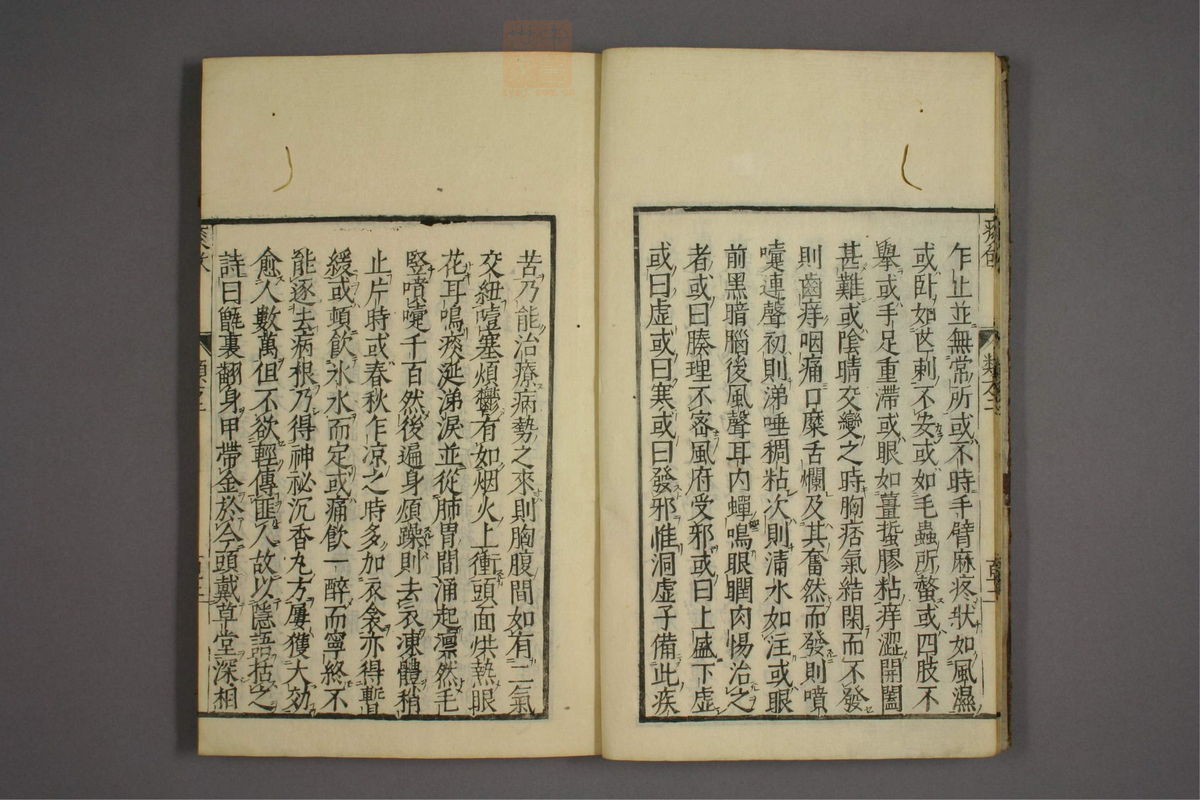 乍止並無常所或不時手臂麻疼狀如風濕
或卧如芒刺不安或如毛蟲所螫或四肢不
舉或手足重滯或眼如薑蜇膠粘痒澀開闔
甚難或陰晴交變之時胸痞氣結閉而不發
則齒痒咽痛口糜舌爛及其奮然而發則噴
嚏連聲初則涕唾稠粘次則清水如注或眼
前黑暗腦後風聲耳內蟬鳴眼瞤肉惕治之
者或曰腠理不密風府受邪或曰上盛下虛
或曰虛或曰寒或曰發邪惟洞虛子備此疾
苦乃能治療病勢之來則胸腹間如有二氣
交紐噎塞煩鬱有如烟火上衝頭面烘熱眼
花耳鳴痰涎涕淚並從肺胃間涌起凛然毛
竪噴嚏千百然後遍身煩躁則去衣凍體稍
止片時或春秋乍凉之時多加衣衾亦得暫
緩或頓飲氷水而定或痛飲一醉而寧終不
能逐去病根乃得神祕沉香丸方屢獲大効
愈人數萬但不欲輕傳匪人故以隱語括之
詩曰甑裏翻身甲帶金於今頭戴草堂深相